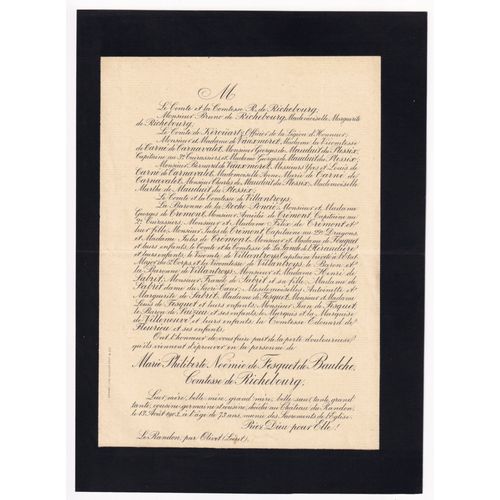 M
Le Comte et la Comtesse R. de Richebourg,
Monsieur Bruno de Richebourg, Mademoiselle Marguerite
de Richebourg,
Le Comte de Kerouartz, Officier de la Légion d'Honneur,
Monsieur et Madame de Vauxmoret, Madame la Vicomtesse
de Carné de Carnavalet, Monsieur Georges de Mauduit du Plessix,
Capitaine au Cuirassiers, et Madame Georges de Mauduit du Plessix,
Monsieur Bernard de Vauxmoret, Messieurs Yves et Louis de
Carné de Carnavalet, Mademoiselle Anne Marie de Carné de
Carnavalet, Monsieur Charles de Mauduit du Plessix, Mademoiselle
Marthe de Mauduit du Plessix,
Le Comte et la Comtesse de Villantroys,
La Baronne de la Roche Poncié, Monsieur et Madame
Georges de Trémont, Monsieur Amédée de Trémont, Capitaine au
Cuirassiers, Monsieur et Madame Félix de Trémont et
leur fille, Monsieur Jules de Trémont, Capitaine au Dragons,
et Madame Jules de Trémont, Monsieur et Madame de Fesquet
et leurs enfants, le Comte et la Comtesse de la Lande d'Hermantier
et leurs enfants, le Vicomte de Villantroys, Capitaine breveté à l'Etat
Major du Corps et la Vicomtesse de Villantroys, le Baron et
la Baronne de Villantroys, Monsieur et Madame Henri de
Jabrit, Monsieur Franck de Jabrit et sa fille, Madame de
Jabrit dame du Sacré-Cœur, Mesdemoiselles Antoinette et
Marguerite de Jabrit, Madame de Fesquet, Monsieur et Madame
Louis de Fesquet et leurs enfants, Monsieur Jean de Fesquet,
le Baron de et ses enfants, le Marquis et la Marquise
de Villeneuve et leurs enfants, la Comtesse Edouard de
Fleurieu et ses enfants,
Ont l'honneur de vous faire part de la perte douloureuse
qu'ils viennent d'éprouver en la personne de
Marie Philiberte Noémie de Fesquet de Baulche,
Comtesse de Richebourg,
Leur mère, belle-mère, grand'mère, belle-sœur, tante, grand'
tante, cousine-germaine et cousine, décédée au Château du Randon,
le 13 Août à l'âge de 73 ans, munie des Sacrements de l'Eglise.
Priez Dieu pour Elle!
Le Randon, par Olivet (Loiret).